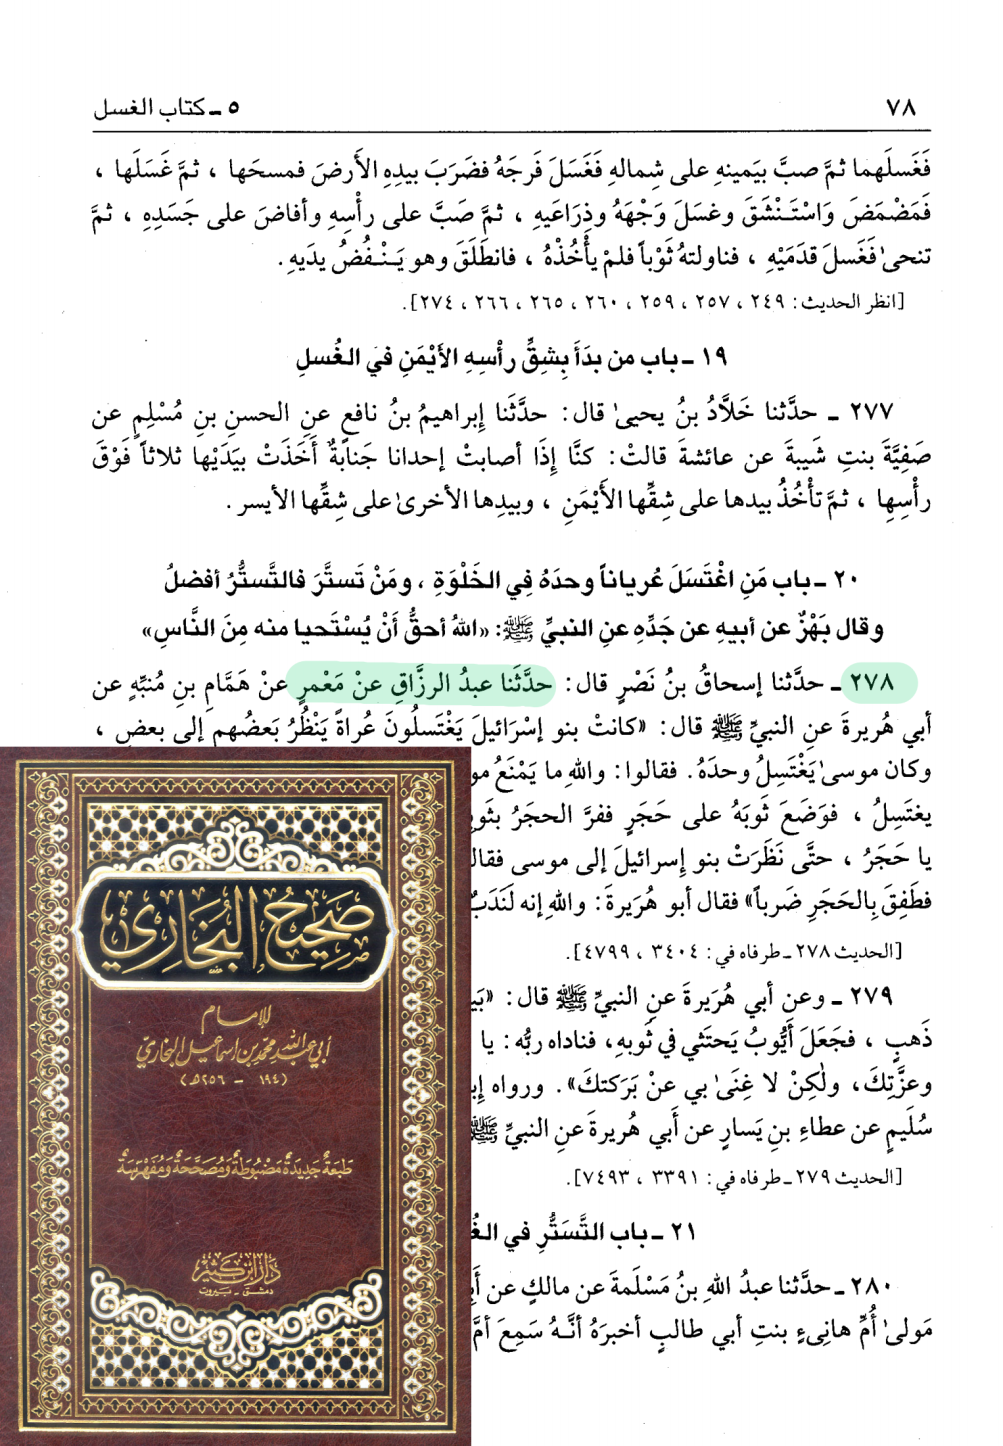 ٧٨
٥ ـ كتاب الغسل
فَغَسلَهما ثمَّ صبَّ بيَمينهِ على شِمالهِ فَغَسلَ فَرجَهُ فضَرَبَ بيدِهِ الأَرضَ فمسحَها ، ثمَّ غَسَلَها ،
فَمَضْمَضَ وَاسْتَـنْشَقَ وغسَلَ وَجْهَهُ وذِرَاعَيهِ ، ثمَّ صَبَّ على رأْسِهِ وأفاضَ على جَسَدِهِ ، ثمَّ
تنحىٰ فَغَسلَ قدَمَيْهِ ، فناولتهُ ثَوْباً فلمْ يأْخُذْهُ ، فانطَلَقَ وهو يَـنْـفُضُ يدَيهِ.
[انظر الحديث: ٢٤٩ ، ٢٥٧ ، ٢٥٩ ، ٢٦٠ ، ٢٦٥ ، ٢٦٦ ، ٢٧٤].
١٩ ـ باب من بدَأَ بِشِقِّ رأْسِهِ الأَيْمَنِ في الغُسلِ
٢٧٧ ـ حدَّثنا خَلَّادُ بنُ يحيىٰ قال: حدَّثَنا إبراهيمُ بنُ نافعٍ عنِ الحسنِ بنِ مُسْلِمٍ عن
صَفِيَّةَ بنتِ شَيبةَ عن عائشةَ قالتْ: كنَّا إِذَا أصابتْ إحدانا جَنابةٌ أَخَذَتْ بيَدَيْها ثلاثاً فَوْقَ
رأْسِها ، ثمَّ تأْخُذُ بيدها على شِقِّها الأَيْمَنِ ، وبيدِها الأخرىٰ على شِقِّها الأيسر.
٢٠ ـ باب مَنِ اغْتَسَلَ عُرياناً وحدَهُ فِي الخَلْوَةِ ، ومَنْ تَستَّرَ فالتَّستُّرُ أفضلُ
وقال بَهْزٌ عن أبيهِ عن جَدِّهِ عنِ النبيِّ ﷺ: «اللهُ أحقُّ أَنْ يُسْتَحيا منه مِنَ النَّاسِ»
٢٧٨ ـ حدَّثنا إسحاقُ بنُ نَصْرٍ قال: حدَّثَنا عبدُ الرزَّاقِ عنْ مَعْمرٍ عنْ هَمَّامِ بنِ مُنبِّهٍ عن
أبي هُريرةَ عنِ النبيِّ ﷺ قال: «كانتْ بنو إسْرَائيلَ يَغْتَسلُونَ عُراةً يَنْظُرُ بَعضُهم إلى بعضٍ ،
وكان موسىٰ يَغْتَسِلُ وحدَهُ. فقالوا: واللهِ ما يَمْنَعُ
يغتَسِلُ ، فوَضَعَ ثَوبَهُ على حَجَرٍ ففرَّ الحجَرُ
يا حَجَرُ ، حتَّى نَظَرَتْ بنو إِسرائيلَ إلى موسى
فطَفِقَ بِالحَجَرِ ضَرباً» فقال أبو هُرَيرةَ: واللهِ إنه لَنَدَبٌ
[الحديث ٢٧٨ ـ طرفاه في: ٣٤٠٤ ، ٤٧٩٩].
٢٧٩ ـ وعن أبي هُرَيرةَ عنِ النبيِّ ﷺ قال:
ذَهبٍ ، فجَعَلَ أَيُّوبُ يَحتَثي في ثَوبهِ، فناداه ربُّه: يا
وعزَّتِكَ، ولٰكِنْ لا غِنَىٰ بي عنْ بَرَكتكَ». ورواه
سُلَيمٍ عن عطاءِ بنِ يَسارٍ عن أَبي هُريرةَ عنِ النبيِّ ﷺ
[الحديث ٢٧٩ ـ طرفاه في: ٣٣٩١ ، ٧٤٩٣].
٢١ ـ باب التَّسَتُّرِ في
٢٨٠ ـ حدَّثنا عبدُ اللهِ بنُ مَسْلَمةَ عن مالكٍ عن
مَولىٰ أُمِّ هانىءٍ بنتِ أبي طالبٍ أخبرَهُ أنَّـهُ سَمِعَ
صَحِيحُ البُخَاريّ
للإمام
أبي عبد الله محمد بن اسماعيل البخاري
(١٩٤ - ٢٥٦ هـ)
طَبعَةٌ جَديدَةٌ مَضبُوطَةٌ وَمُصَحَّحَةٌ وَمُفَهرَسَةٌ
دار ابن كثير
دمشق - بيروت